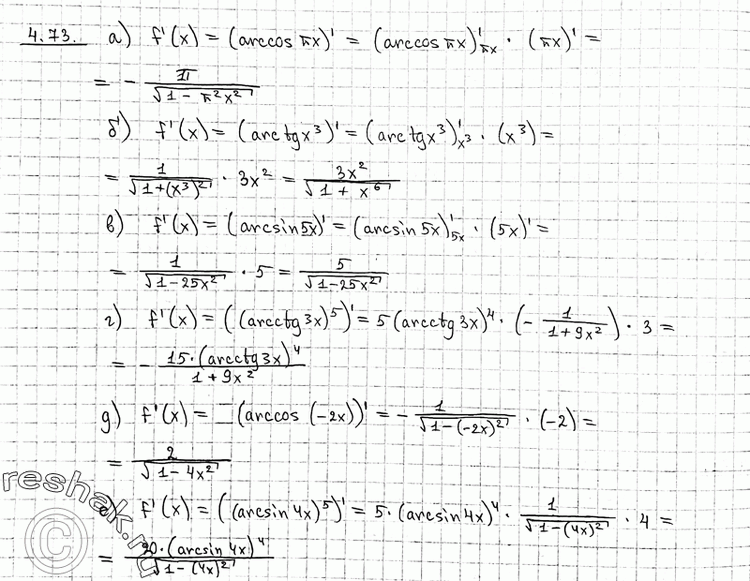 4.73. а) f'(x) = (arccos πx)' = (arccos πx)'_πx · (πx)' =
= - π / √(1 - π²x²)
б) f'(x) = (arctgx³)' = (arctgx³)'_x³ · (x³) =
= 1 / √(1+(x³)²) · 3x² = 3x² / √(1 + x⁶)
в) f'(x) = (arcsin5x)' = (arcsin 5x)'_5x · (5x)' =
= 1 / √(1-25x²) · 5 = 5 / √(1-25x²)
г) f'(x) = ((arcctg 3x)⁵)' = 5 (arcctg 3x)⁴ · (- 1 / (1+9x²)) · 3 =
= - 15·(arcctg 3x)⁴ / (1 + 9x²)
д) f'(x) = (arccos (-2x))' = - 1 / √(1-(-2x)²) · (-2) =
= 2 / √(1-4x²)
е) f'(x) = ((arcsin 4x)⁵)' = 5·(arcsin 4x)⁴ · 1 / √(1-(4x)²) · 4 =
= 20·(arcsin 4x)⁴ / √(1-(4x)²)
reshak.ru
©